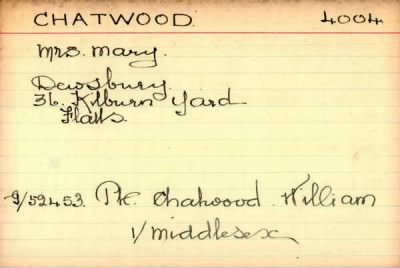 CHATWOOD. 4004
Mrs. Mary.
Dewsbury.
36. Kilburn Yard
Flatts.
9/52453. Pte. Chatwood. William
1/ Middlesex